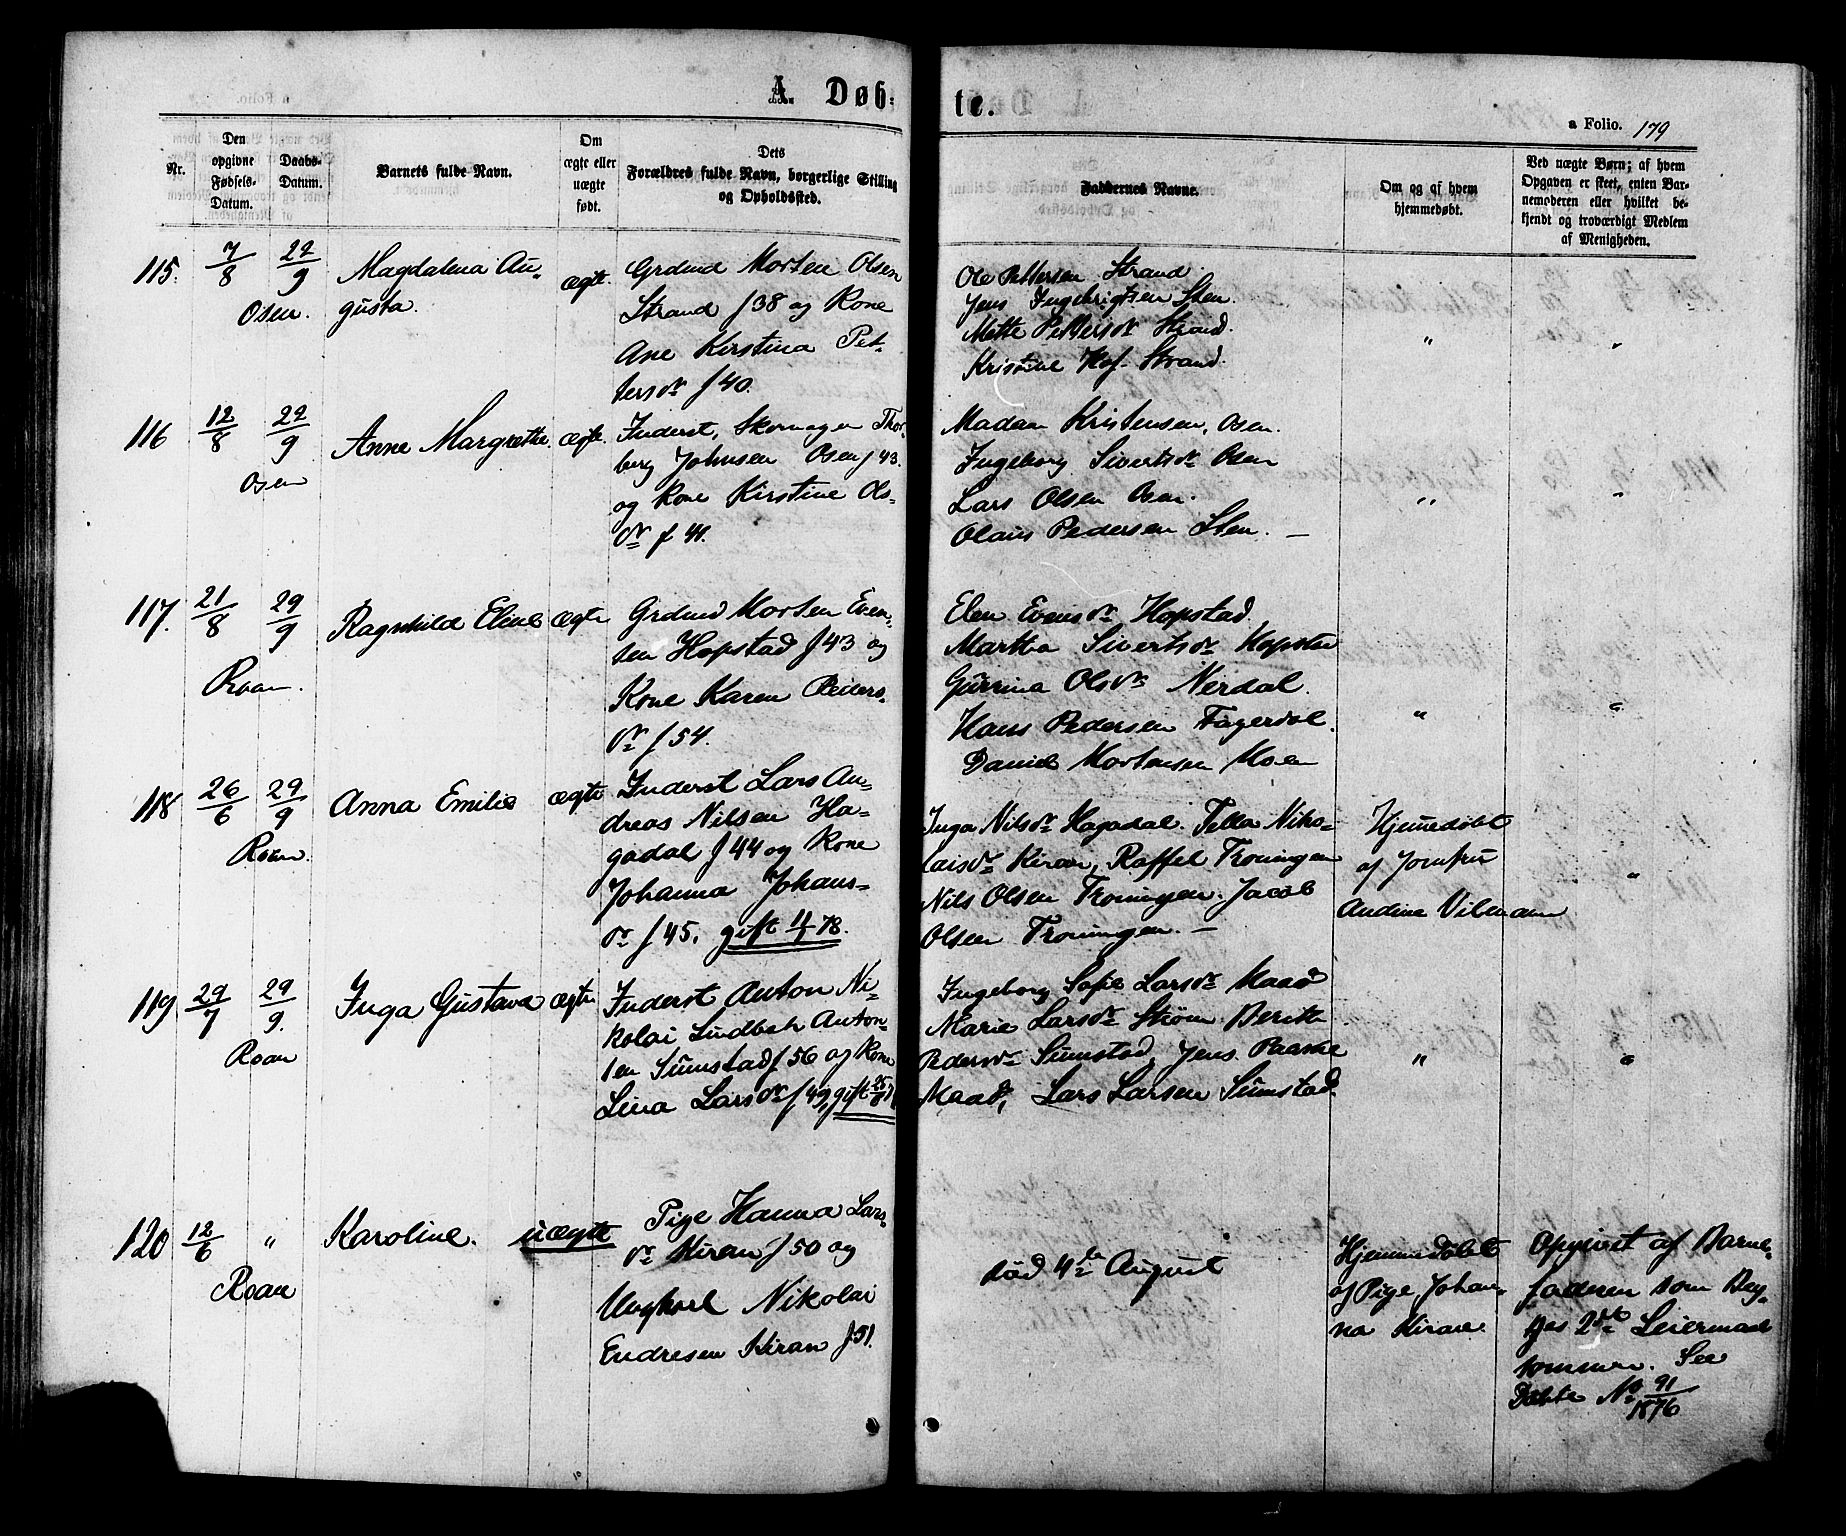 A Døb-
te.
a Folio. 179
Nr.
Den opgivne Fødsels-Datum.
Daabs-Datum.
Barnets fulde Navn.
Om ægte eller uægte født.
Dets Forældres fulde Navn, borgerlige Stilling og Opholdssted.
Faddernes Navne.
Om og af hvem hjemmedøbt.
Ved uægte Børn; af hvem Opgaven er skeet, enten Barnemoderen eller hvilket bekjendt og troværdigt Medlem af Menigheden.
115. 7/8 22/9 Magdalena Au-
Osen. gusta. ægte.
Grdmd Morten Olsen
Strand f 38 og Kone
Ane Kirstina Pet-
tersdr f 40.
Ole Pettersen Strand
Jens Ingebrigtsen Sten.
Mette Pettersdr Strand.
Kristine Hof- Strand.
" "
116 12/8 22/9 Anne Margrethe ægte.
Osen
Inderst, Skomager Thor-
berg Johnsen Osen f 43.
og Kone Kirstine Ols-
dr f 41.
Madam Kristensen, Osen.
Ingeborg Sivertsdr Osen
Lars Olsen Osen.
Olaus Pedersen Sten. —
" "
117. 21/8 29/9 Ragnhild Eline ægte
Roan.
Grdmd Morten Even-
sen Hopstad f 43 og
Kone Karen Peders-
dr f 54.
Elen Evensdr Hopstad.
Martha Sivertsdr Hopsta
Gurrina Olsdr Nerdal.
Hans Pedersen Fagerdal.
Daniel Mortensen Moen
" "
118 26/6 29/9 Anna Emilie ægte
Roan.
Inderst Lars An-
dreas Nilsen Ha-
gadal f 44 og Kone
Johanna Johans-
dr f 45. gift 11/1 78.
Inga Nilsdr Hagadal. Tella Niko-
laisdr Kiran, Raffel Troningen
Nils Olsen Troningen. Jacob
Olsen Troningen. —
Hjemmedøbt
af Jomfru
Andine Vilmann
"
119 29/7 29/9. Inga Gustava ægte
Roan
Inderst Anton Ni-
kolai Lindbek Anton-
sen Sumstad f 56 og Kone
Lina Larsdr f 49, gift
Ingeborg Sofie Larsdr Maad
Marie Larsdr Strøm. Berit
Pedersdr Sumstad, Jens Paaske
Maad, Lars Larsen Sumstad.
" "
120 12/6 " Karoline. uægte
Roan
Pige Hanna Lars-
dr Kiran f 50 og
Ungkarl Nikolai
Endresen Kiran f 51.
død 4de August
Hjemmedøbt
af Pige Johan-
na Kiran.
Opgivet af Barne-
faderen som Beg-
ges 2det Leiermaal
sammen. See
Døbte No 91/1876